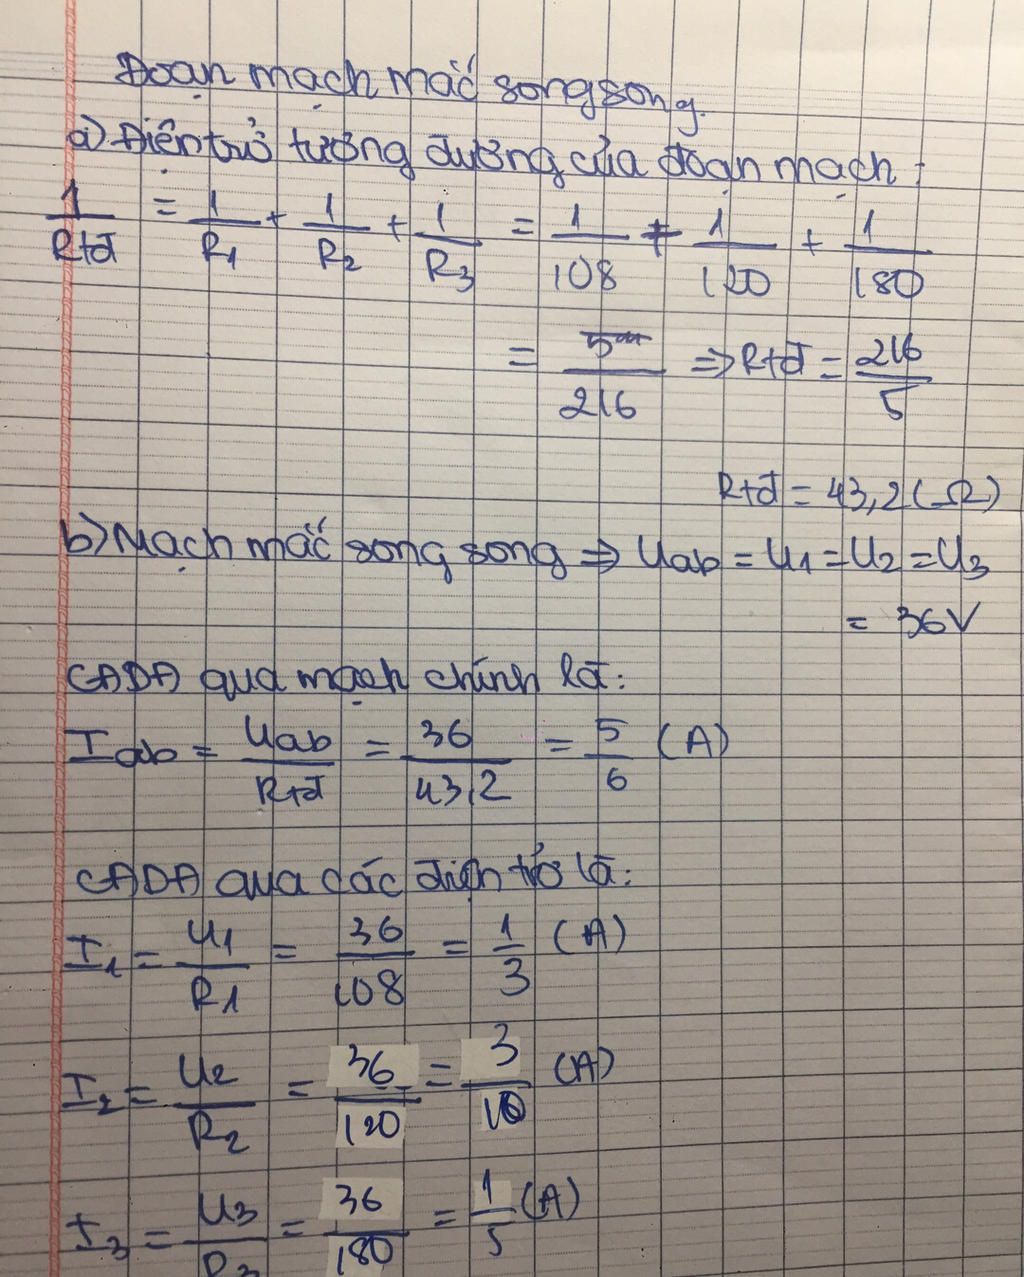 Đoạn mạch mắc song song.
a) Điện trở tương đương của đoạn mạch:
1/Rtđ = 1/R1 + 1/R2 + 1/R3 = 1/108 + 1/120 + 1/180
= 5/216 => Rtđ = 216/5
Rtđ = 43,2 (Ω)
b) Mạch mắc song song => Uab = U1 = U2 = U3
= 36V
CĐDĐ qua mạch chính là:
Iab = Uab/Rtđ = 36/43,2 = 5/6 (A)
CĐDĐ qua các điện trở là:
I1 = U1/R1 = 36/108 = 1/3 (A)
I2 = U2/R2 = 36/120 = 3/10 (A)
I3 = U3/R3 = 36/180 = 1/5 (A)